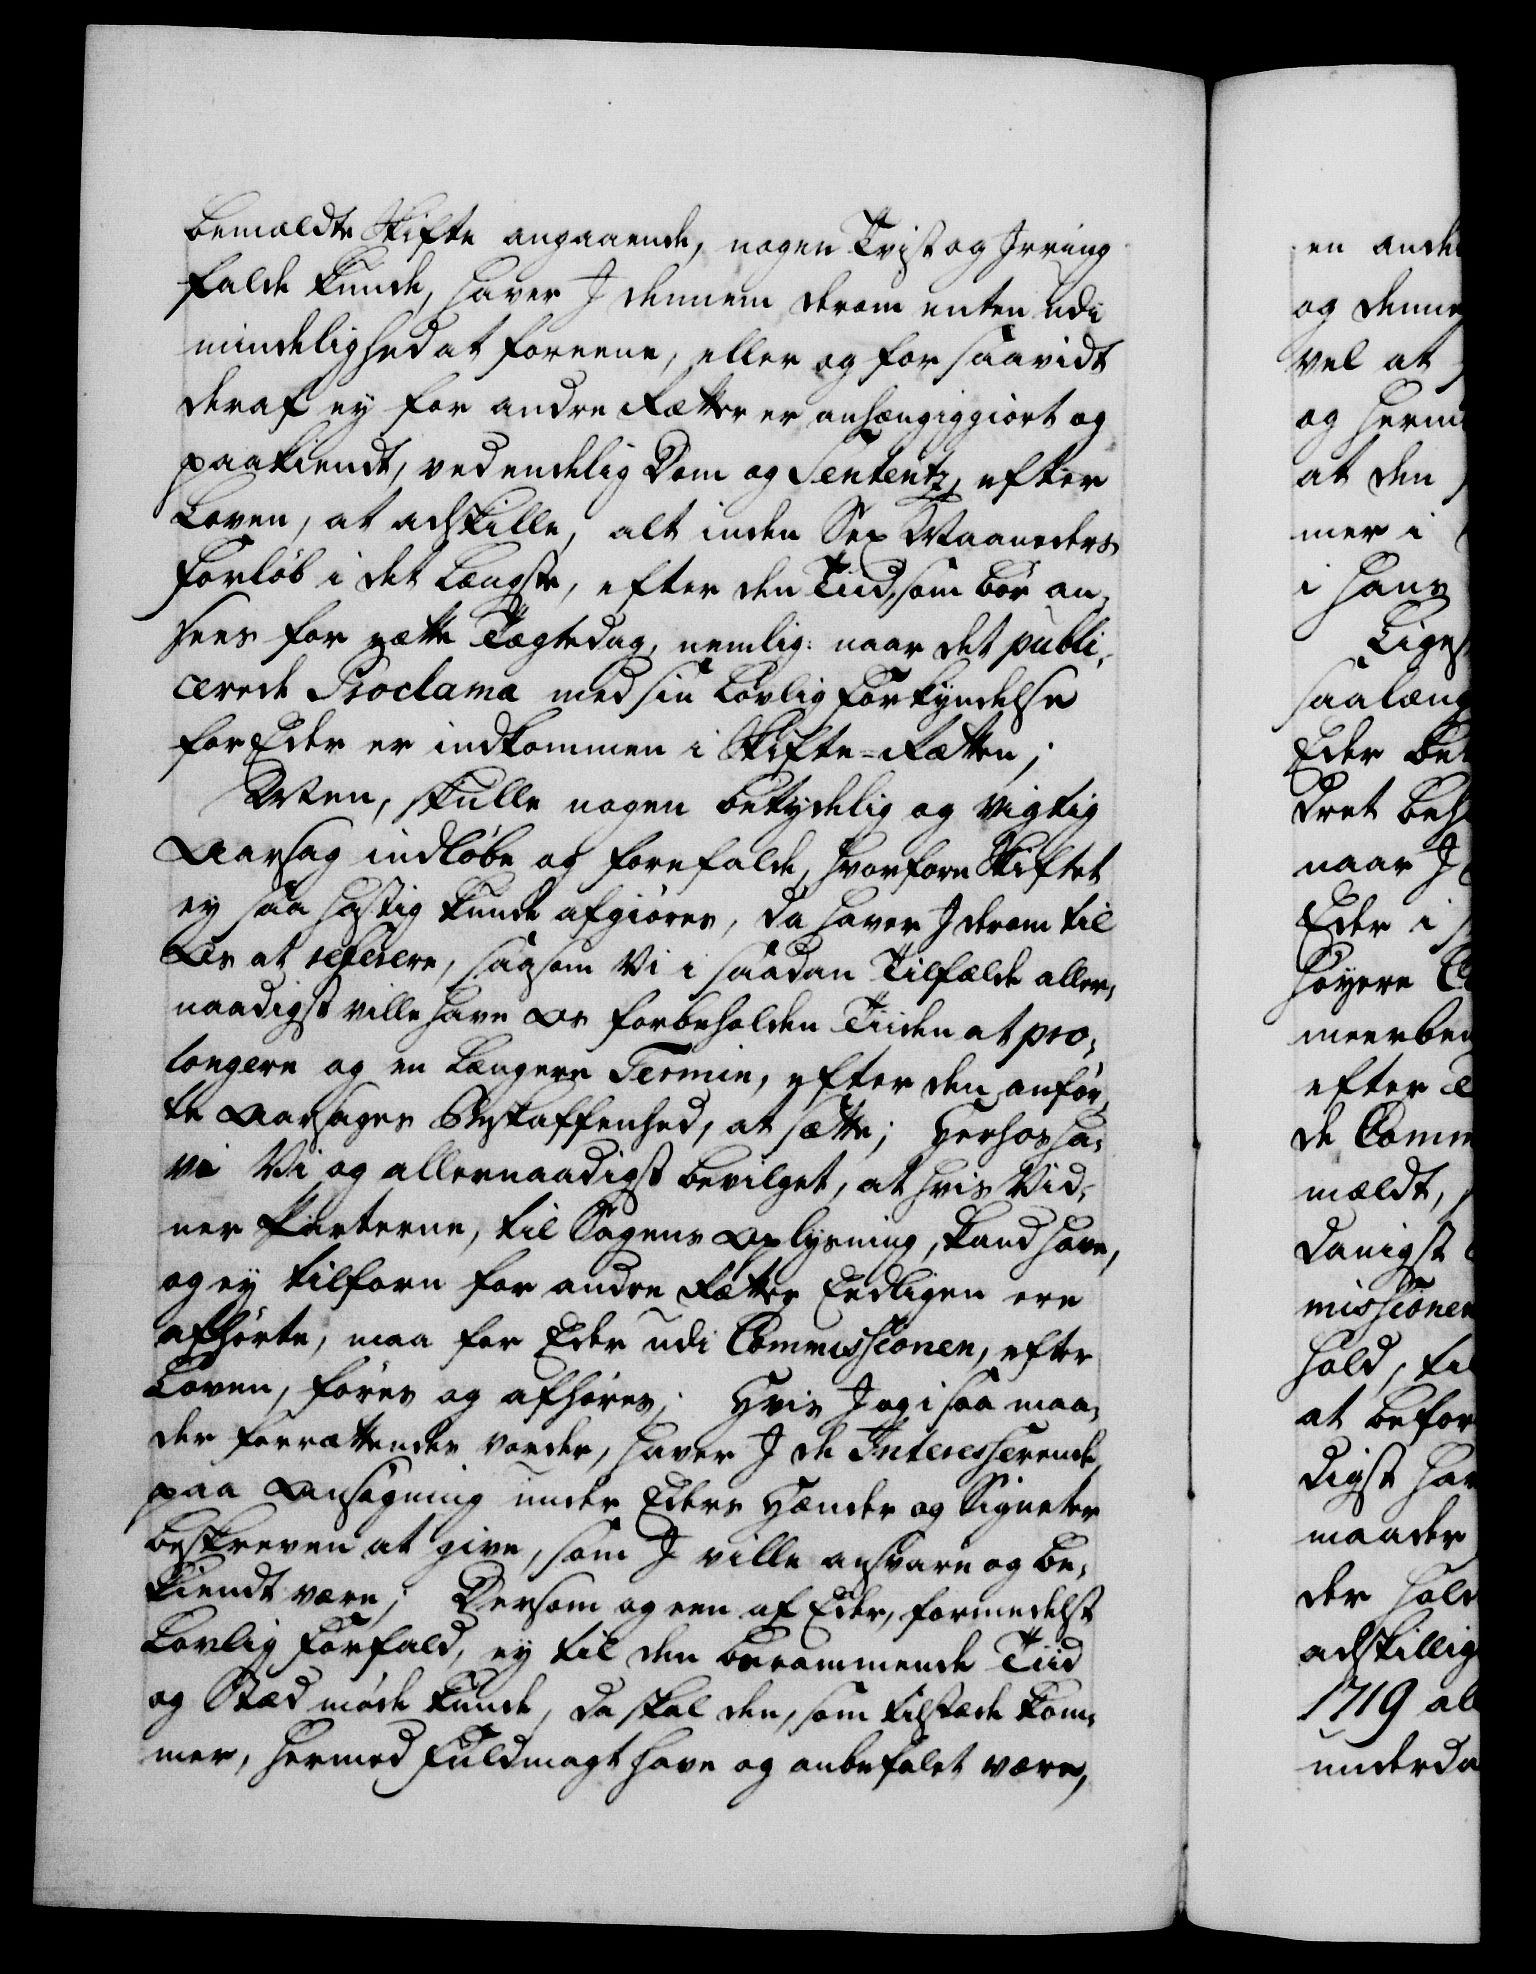 bemældte Skifte angaaende, nogen Tvist og Irring
falde kunde, haver I dennem derom enten udi
mindelighed at foreene, eller og for saavidt
deraf ey for andre Retter er anhængiggiort og
paakiendt, ved endelig Dom og Sententz, efter
Loven, at adskille, alt inden Sex Maaneders
Forløb i det længste, efter den Tiid, som bør an-
sees for rætte Tægtedag, nemlig: naar det publi-
cerede Proclama med sin lovlig Forkyndelse
for Eder er indkommen i Skifte-Retten;
Men, skulle nogen betydelig og vigtig
Aarsag indløbe og forefalde, hvorfore Skiftet
ey saa hastig kunde afgiøres, da haver I derom til
Os at referere, saasom Vi i saadan Tilfælde aller-
naadigst ville have Os forbeholden Tiiden at pro-
longere og en længere Termin, efter den anfør-
te Aarsages Beskaffenhed, at sætte; Herhos ha-
ve Vi og allernaadigst bevilget, at hvis Vid-
ner Parterne, til Sagens Oplysning, kand have,
og ey tilforn for andre Retter Eedligen ere
afhørte, maa for Eder udi Commissionen, efter
Loven, føres og afhøres; Hvis I og i saa maa-
der forrettendes vorder, haver I de Interesserende,
paa Ansøgning under Eders Hænder og Signeter
beskreven at give, som I ville ansvare og be-
kiendt være; Dersom og een af Eder, formedelst
Lovlig Forfald, ey til den berammende Tiid
og Stæd møde kunde, da skal den, som tilstæde kom-
mer, hermed Fuldmagt have og anbefalet være,
en ande
og denne
vel at
og herm
at den
mer i
i hans
Liges
saalæng
Eder
dret
naar I
Eder i
høyere
meerbe
efter
de Comm
mældt,
danigst
missionen
hold, til
at befor
digst har
maader
der hold
adskillig
1719 al
underda